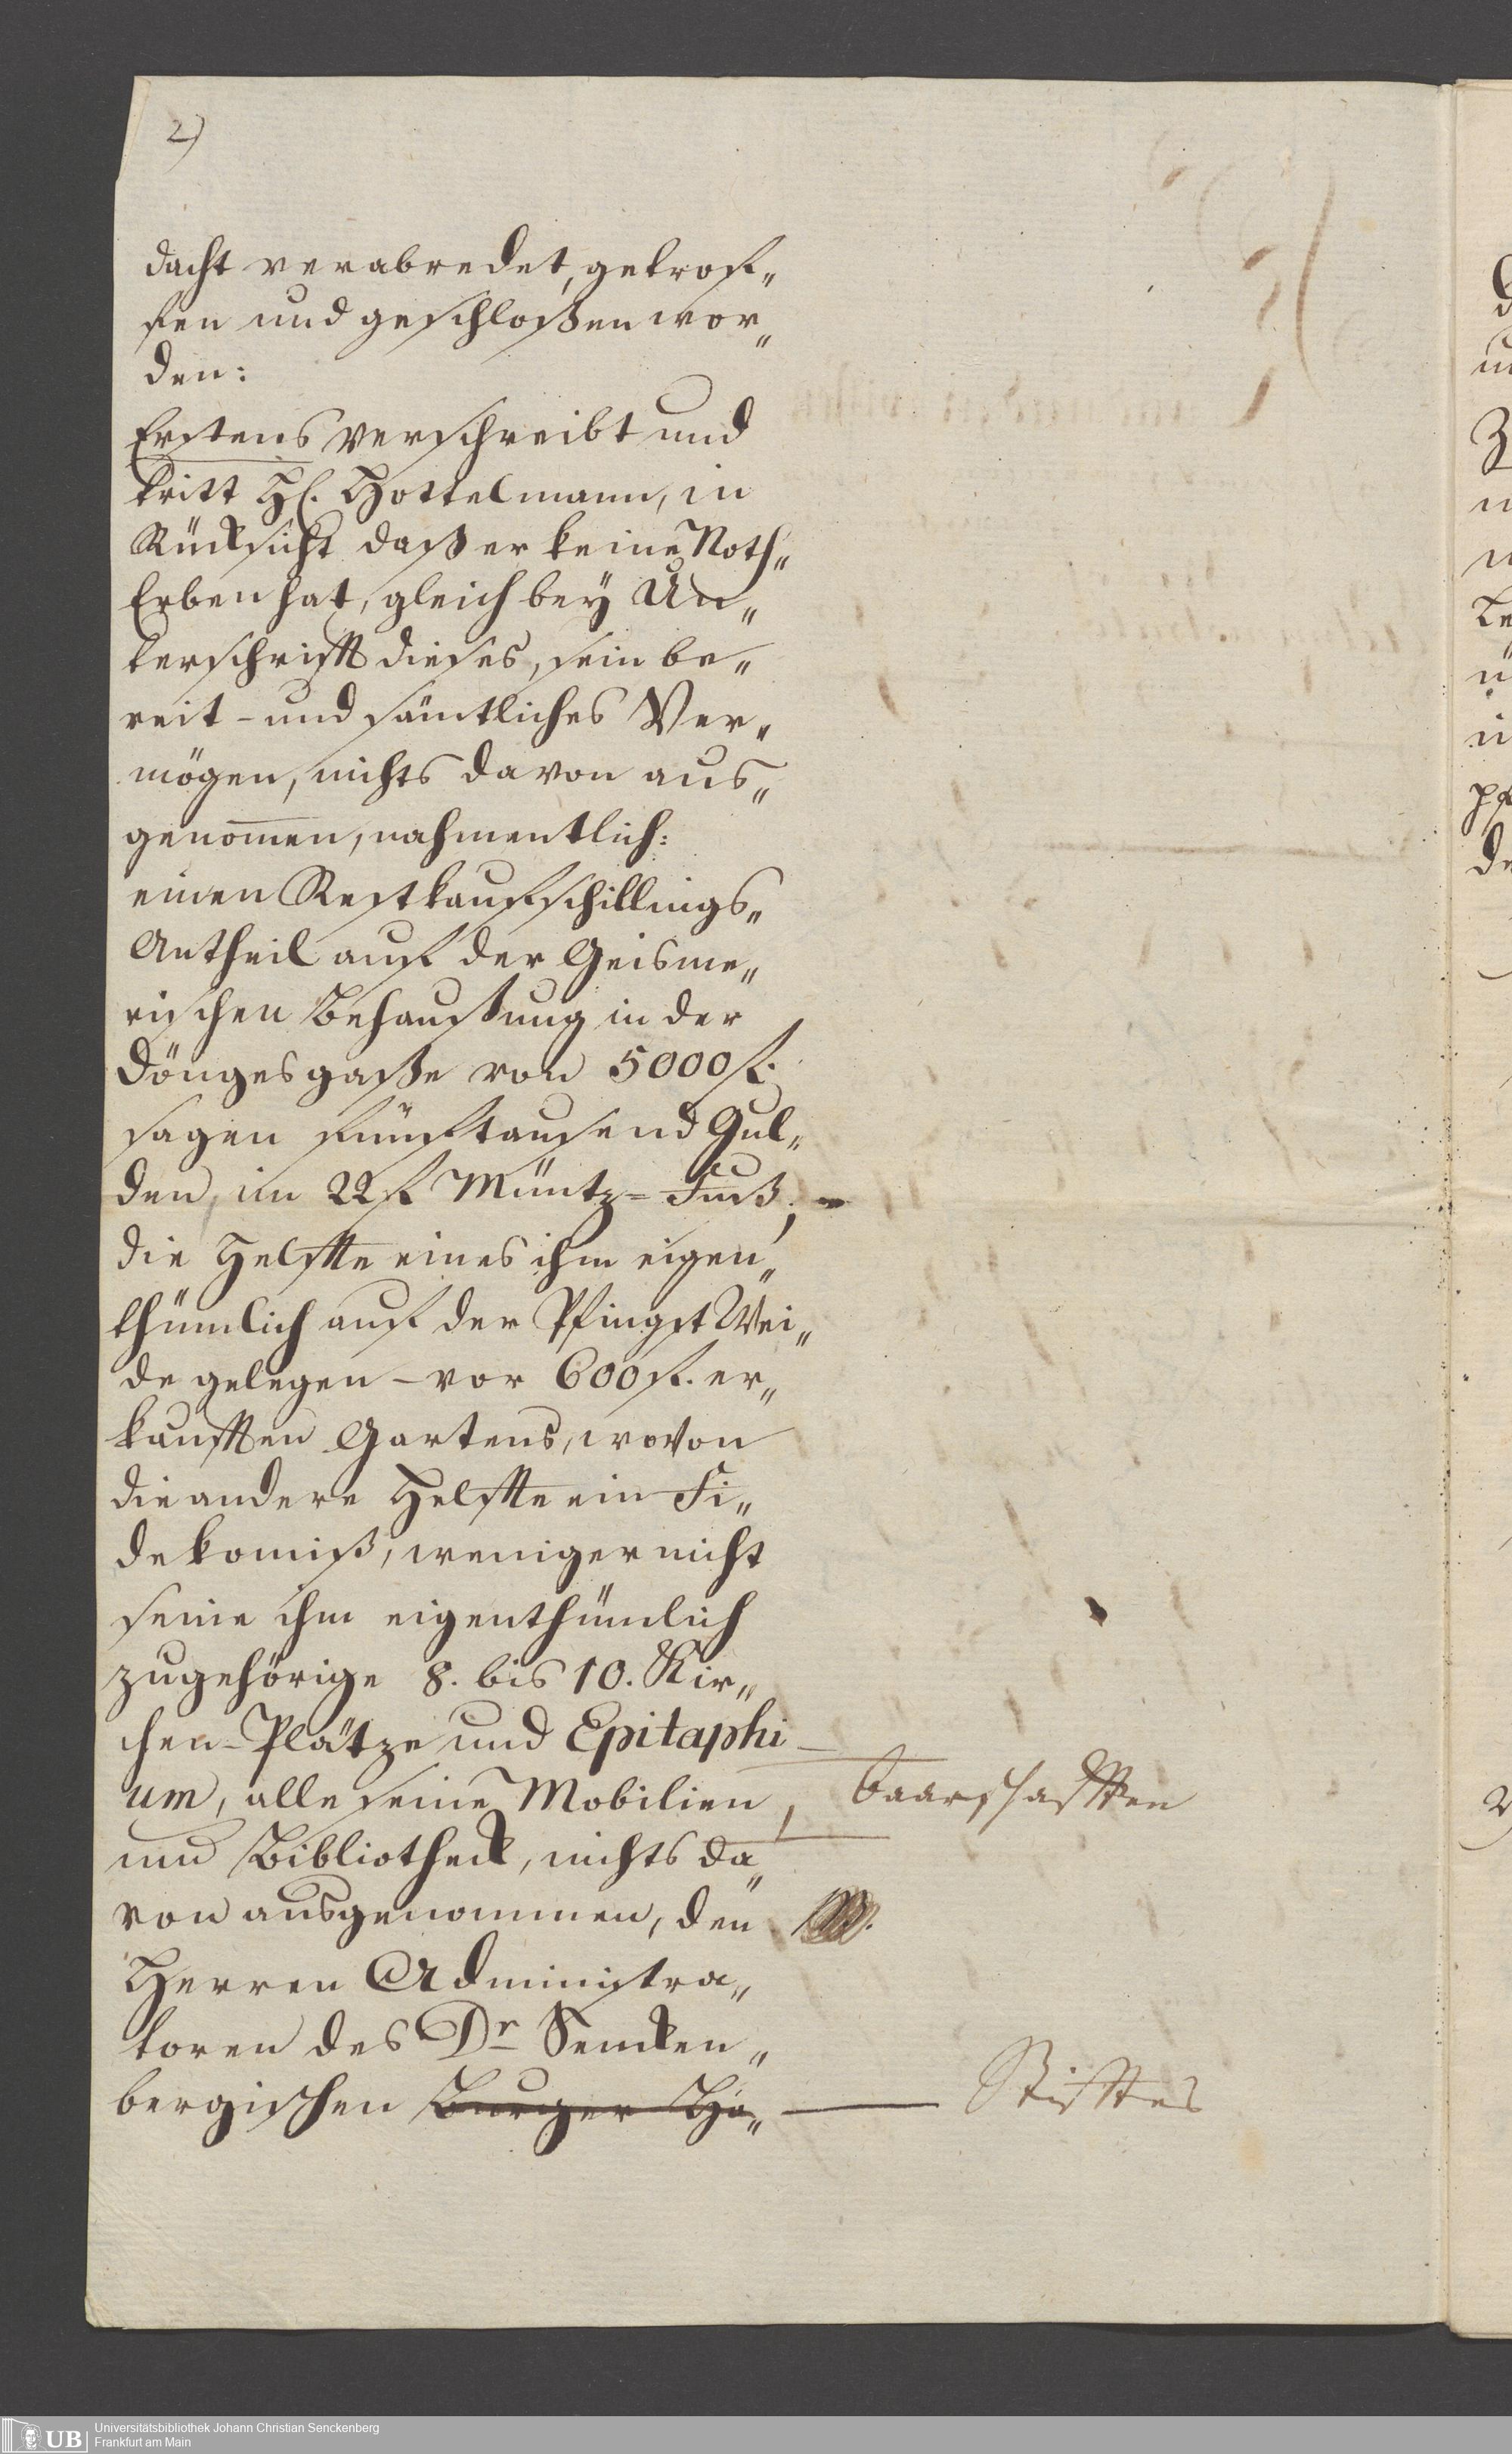 2)
dacht verabredet, getrof„
fen und geschloßen wor„
den:
Erstens verschreibt und
tritt H. Hottelmann, in
Rücksicht daß er keine Noth„
Erben hat, gleich bey Un„
terschrifft dieses, sein be„
reit- und sämtliches Ver„
mögen, nichts davon aus„
genomen, nahmentlich:
einen Restkaufschillings„
Antheil auf der Geisme„
rischen Behaußung in der
Döngesgaße von 5000 f.
sagen fünftausend Gul„
den, im 22 f Müntz=Fuß; -
die Helffte eines ihm eigen„
thümlich auf der PfingstWei„
de gelegen - vor 600 f. er„
kaufften Gartens, wovon
die andere Helffte ein Fi„
dekomiß, weniger nicht
seine ihm eigenthümlich
zugehörige 8. bis 10. Kir„
chen-Plätze und Epitaphi
um, alle seine Mobilien, baarschafften
und Bibliotheck, nichts da„
von ausgenommen, den
Herren Administra„
toren des Dr Sencken„
bergischen Burger Ho„ Stifftes
UB Universitätsbibliothek Johann Christian Senckenberg
Frankfurt am Main